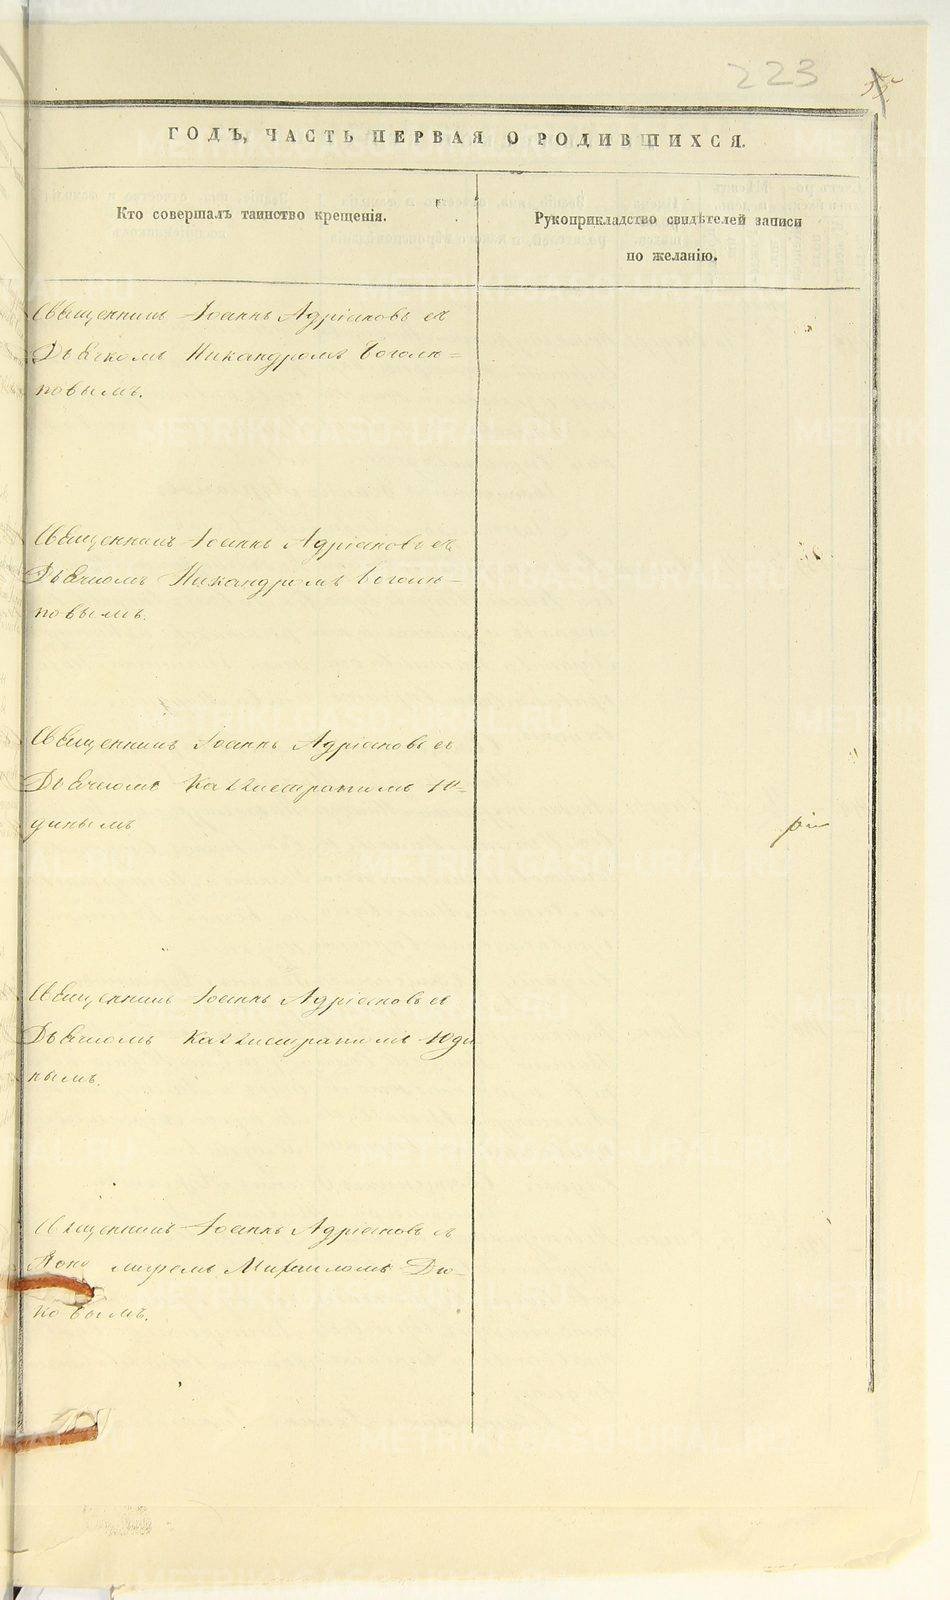 223
ГОДЪ, ЧАСТЬ ПЕРВАЯ О РОДИВШИХСЯ.
Кто совершалъ таинство крещенія.
Рукоприкладство свидѣтелей записи
по желанію.
Священникъ Іоаннъ Адріановъ съ
Дьячкомъ Никандромъ Боголю=
повымъ.
Священникъ Іоаннъ Адріановъ съ
Дьячкомъ Никандромъ Боголю=
повымъ.
Священникъ Іоаннъ Адріановъ съ
Дьячкомъ Каллистратомъ Ю=
динымъ
Священникъ Іоаннъ Адріановъ съ
Дьячкомъ Каллистратомъ Юди
нымъ.
Священникъ Іоаннъ Адріановъ съ
Михаиломъ
METRIKI.GASO-URAL.RU